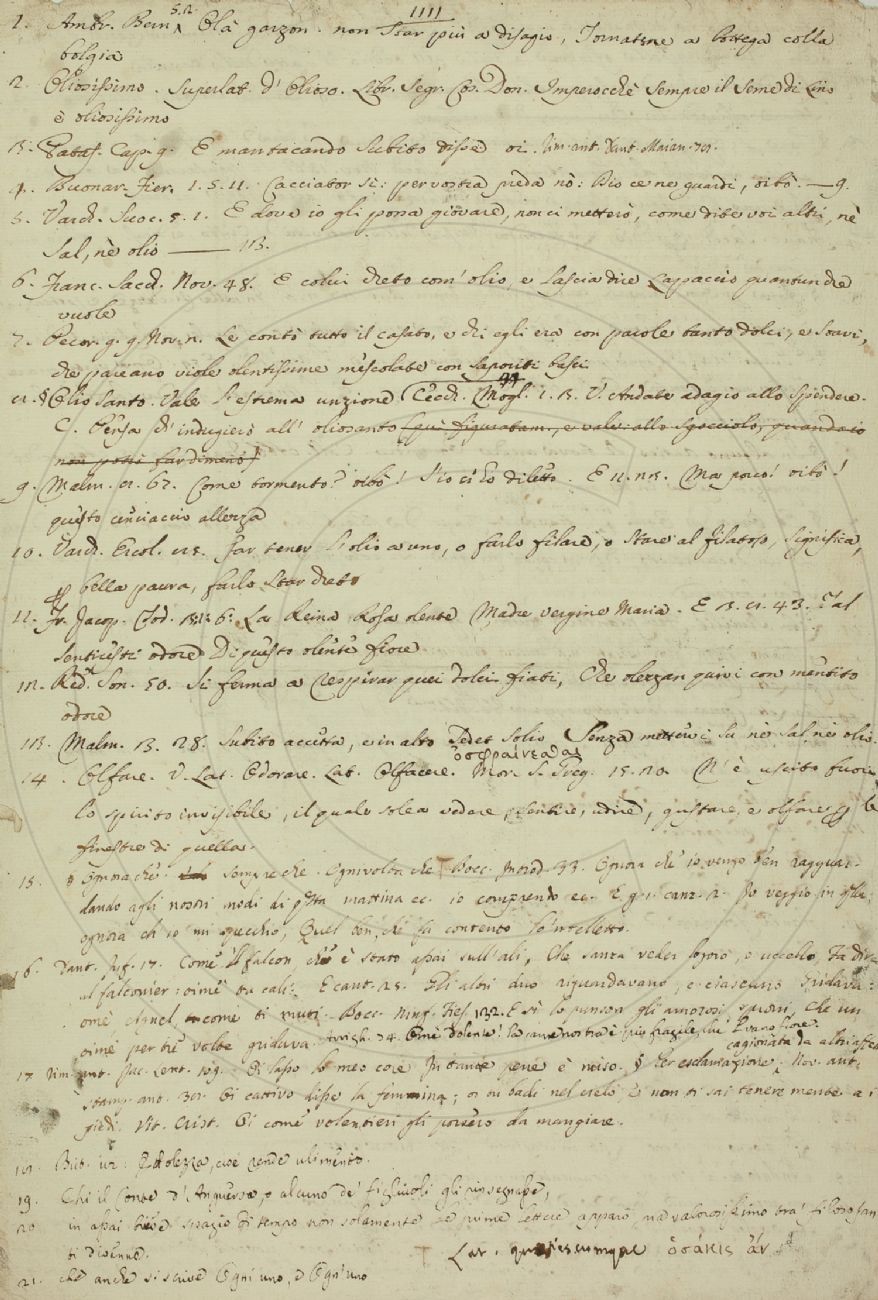 1111
1. Ambr. Bern. 5.2. Olà garzon. non star più a disagio, Tornatene a bottega colla
bolgia
2. Oliosissimo. Superlat. d' Olioso. Libr. Segr. Cos. Don. Imperocchè sempre il seme di Lino
è oliosissimo
3. Pataf. Cap. 9. E mantacando subito disse oi. Rim. ant. Dant. Maian.
4. Buonar. Fier. 1. 5. 11. Cacciator sì: per vostra preda nò: Dio ce ne guardi, oibò. — 9.
5. Varch. Suoc. 5. 1. E dove io gli possa giovare, non ci metterò, come dite voi altri, nè
sal, nè olio —— 13.
6. Franc. Sacch. Nov. 48. E colui cheto com' olio, e lascia dire Lappaccio quantunche
vuole
7. Pecor. g. 9. Nov. 2. Le contò tutto il casato, e chi egli era con parole tanto dolci, e soavi,
che pareano viole olentissime mescolate con saporiti basci
8. § Olio santo. Vale l'estrema unzione Cecch. Mogl. 1. 3. V. Andate adagio allo spendere.
C. Pensa ch' indugierò all' oliosanto (qui figuratam., e vale: allo sgocciolo, quando io
non possi far di meno)
9. Malm. 8. 62. Come tormento? oibò! s'io ci ho diletto. E 11. Ma poco! oibò!
questo cenciaccio allezza
10. Varch. Ercol. Far tener l'olio a uno, o farlo filare, o stare al filatojo, significa,
per bella paura, farlo star cheto
11. Fr. Jacop. Tod. 6. La Reina Rosa olente Madre vergine Maria. E 3. 8. 43. Tal
sentiresti odore Di questo olente fiore
12. Red. Son. 50. Si ferma a respirar quei dolci fiati, Che olezzan quivi con mentito
odore
13. Malm. 3. 28. Subito accetta, e in alto Sedes solio Senza metterci su nè sal nè olio.
ὀσφραίνεσθαι
14. Olfare. V. Lat. Odorare. Lat. Olfacere. Mor. S. Greg. 15. 20. N' è uscito fuori
lo spirito invisibile, il quale solea vedere, sentire, udire, gustare, e olfare per le
finestre di quella.
15. Ognora chè. sempre che. Ognivolta che Bocc. Introd. 33. Ognora che io vengo ben ragguar-
dando agli nostri modi di questa mattina ec. io comprendo ec. E g. 1. canz. 2. Io veggio in quella,
ognora ch' io mi specchio, Quel ben, che fa contento lo 'ntelletto.
16. Dant. Inf. 17. Come 'l falcon, ch' è stato assai sull' ali, Che sanza veder logoro, o uccello, Fa dire
al falconier: oimè tu cali: E cant. 25. Gli altri duo riguardavano, e ciascuno Gridava:
omè Agnel, come ti muti. Bocc. Ninf. Fies. 132. E sì lo punson gli amorosi sproni, Che un
oimè per tre volte gridava. Arrigh. 74. Oimè dolente! la carne nostra è più fragile, che l vano fiore.
cagionata da altri affetti
17. Rim. ant. Jac. Lent. 109. Oi lasso lo meo core In tante pene è miso. § Per esclamazione. Nov. ant.
stamp. ant. 38. Oi cattivo disse la femmina; or tu badi nel cielo, e non ti sai tenere mente a i
piedi. Vit. Crist. Oi come volentieri gli porsero da mangiare.
18. But. Olezza, cioè rende ulimento.
19. Chi il Conte d' Anguersa, o alcuno de' figliuoli gli rinsegnasse,
20. in assai breve spazio di tempo non solamente le prime lettere apparò, ma valorosissimo tra' filosofan
ti divenne. Lat. quotiescumque ὁσάκις ἄν
21. che anche si scrive Ogni uno, e Ogn' uno